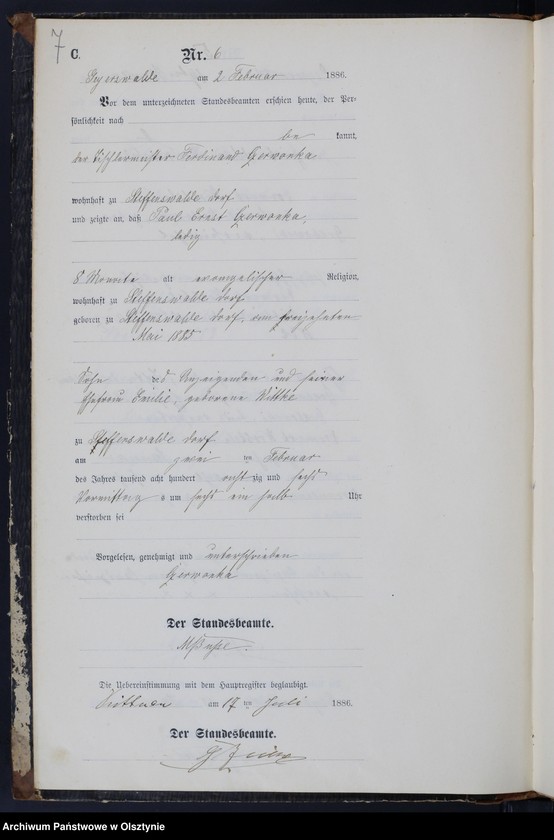 7
C.
Nr. 6
am 2 Februar 1886.
Vor dem unterzeichneten Standesbeamten erschien heute, der Per-
sönlichkeit nach
be kannt,
der Tischlermeister Ferdinand Gerwonka
wohnhaft zu Steffenswalde dorf
und zeigte an, daß Paul Ernst Gerwonka,
ledig
8 Monate alt evangelischer Religion,
wohnhaft zu Steffenswalde dorf
geboren zu Steffenswalde dorf, am
Mai 1885
Sohn des Anzeigenden und seiner
Ehefrau Emilie, geborene Wittke
zu Steffenswalde dorf
am zwei ten Februar
des Jahres tausend acht hundert acht zig und sechs
Vormittag s um sechs ein halb Uhr
verstorben sei
Vorgelesen, genehmigt und unterschrieben
Gerwonka
Der Standesbeamte.
Die Uebereinstimmung mit dem Hauptregister beglaubigt.
am 17 ten Juli 1886.
Der Standesbeamte.
Archiwum Państwowe w Olsztynie